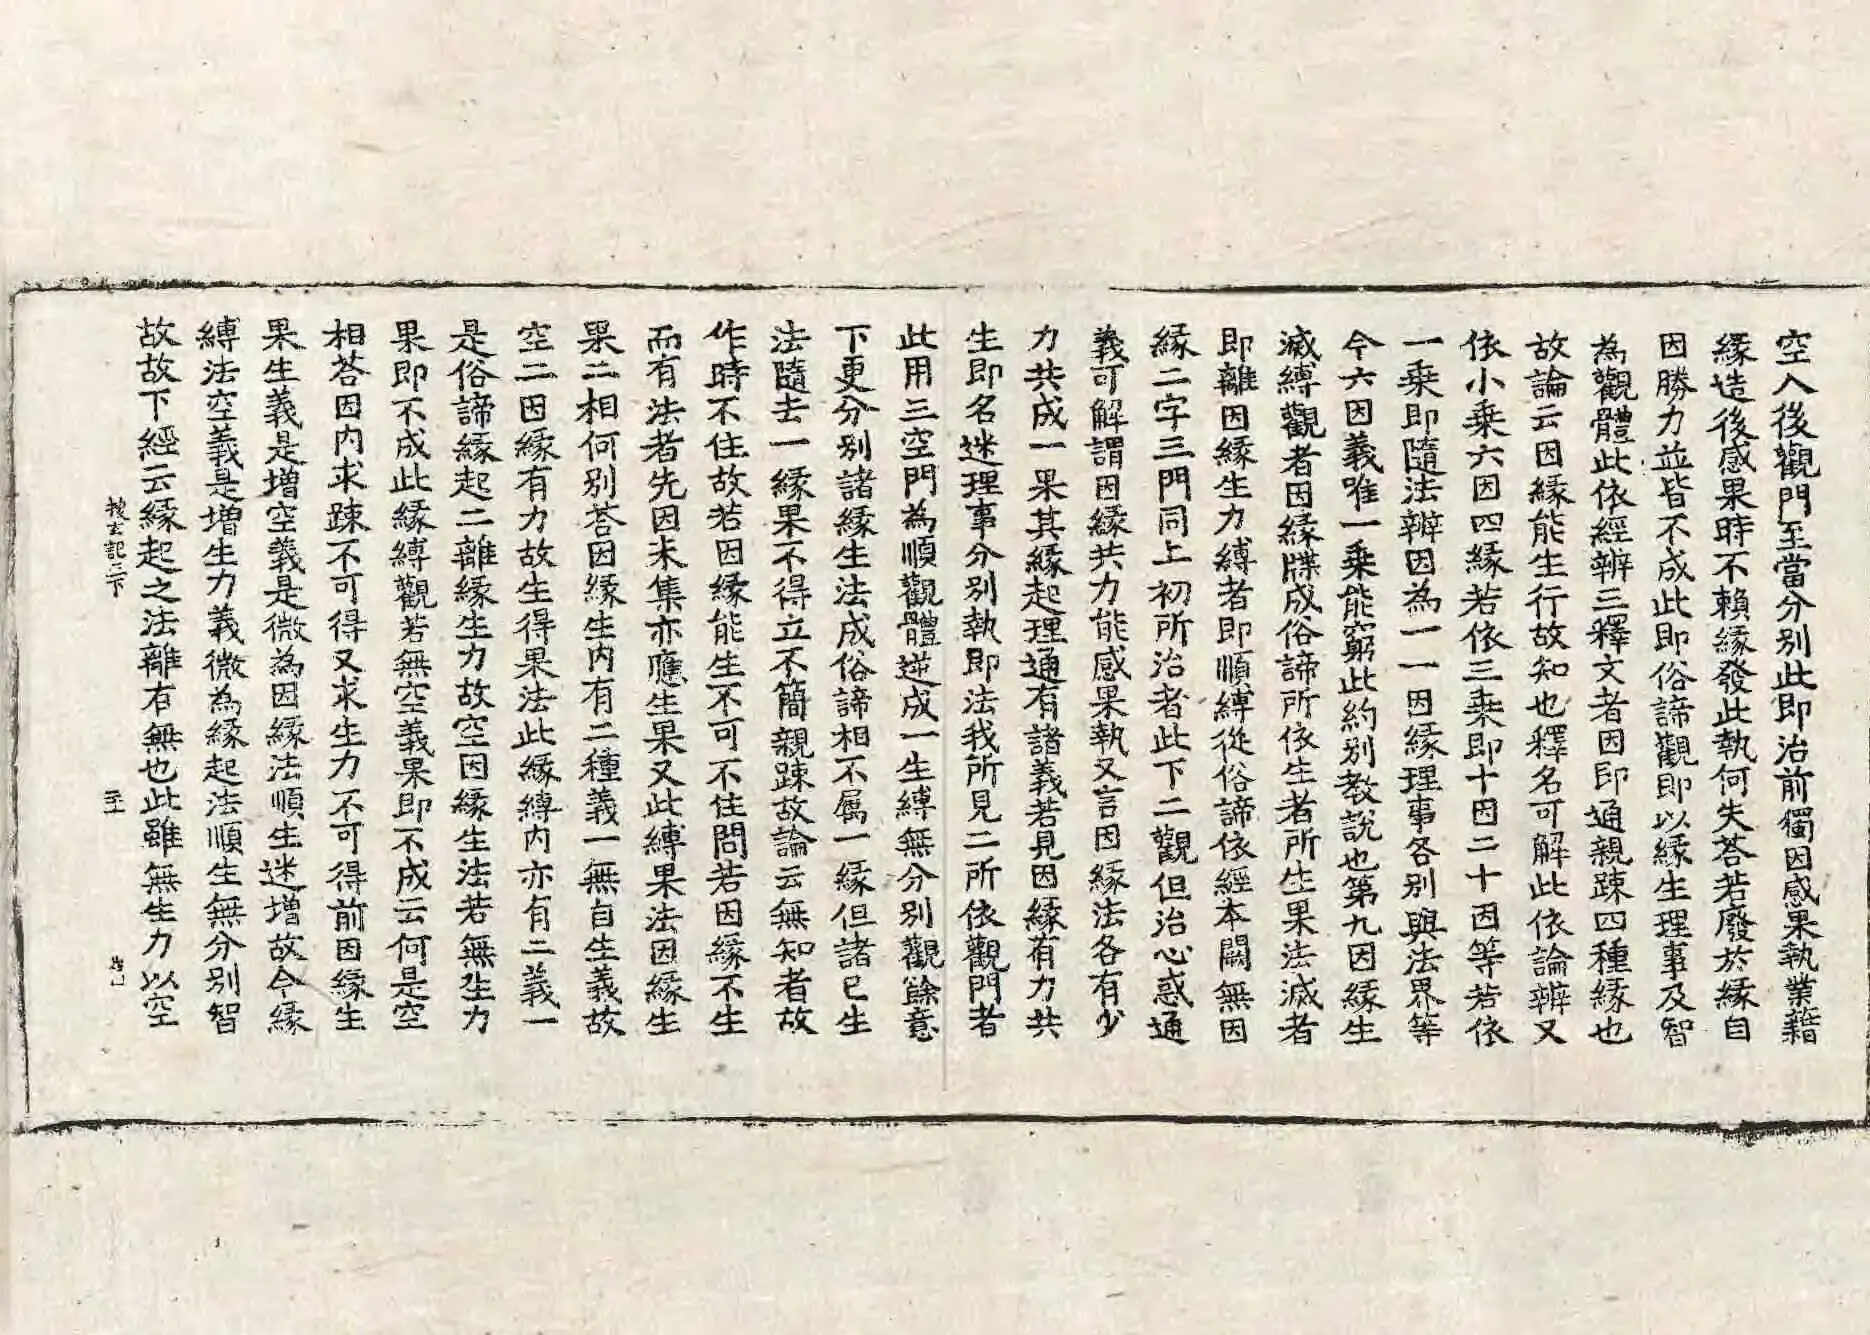 空入後觀門至當分別此即治前獨因感果執業藉
緣造後感果時不賴緣發此執何失荅若廢於緣自
因勝力並皆不成此即俗諦觀即以緣生理事及智
為觀體此依經辨三釋文者因即通親踈四種緣也
故論云因緣能生行故知也釋名可解此依論辨又
依小乘六因四緣若依三乘即十因二十因等若依
一乘即隨法辨因為一一因緣理事各別與法界等
今六因義唯一乘能窮此約別教說也第九因緣生
滅縛觀者因緣牒成俗諦所依生者所生果法滅者
即離因緣生力縛者即順縛從俗諦依經本闕無因
緣二字三門同上初所治者此下二觀但治心惑通
義可解謂因緣共力能感果執又言因緣法各有少
力共成一果其緣起理通有諸義若見因緣有力共
生即名迷理事分別執即法我所見二所依觀門者
此用三空門為順觀體逆成一生縛無分別觀餘意
下更分別諸緣生法成俗諦相不屬一緣但諸已生
法隨去一緣果不得立不簡親踈故論云無知者故
作時不住故若因緣能生不可不住問若因緣不生
而有法者先因未集亦應生果又此縛果法因緣生
果二相何別荅因緣生內有二種義一無自生義故
空二因緣有力故生得果法此緣縛內亦有二義一
是俗諦緣起二離緣生力故空因緣生法若無生力
果即不成此緣縛觀若無空義果即不成云何是空
相荅因內求踈不可得又求生力不可得前因緣生
果生義是增空義是微為因緣法順生迷增故今緣
縛法空義是增生力義微為緣起法順生無分別智
故故下經云緣起之法離有無也此雖無生力以空
搜玄記三下